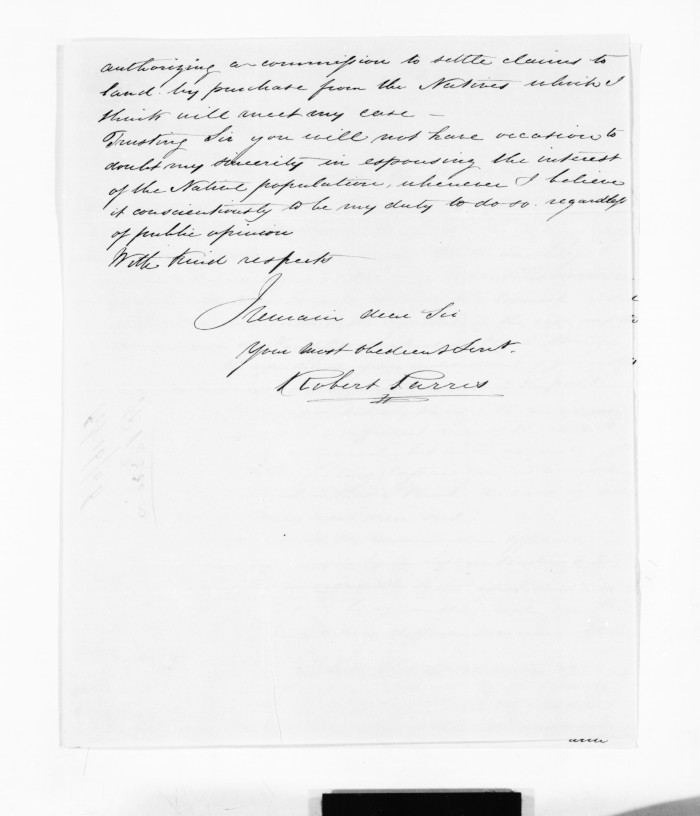 authorizing a commission to settle claims to
land by purchase from the Natives which I
think will meet my case –
Trusting Sir you will not have occasion to
doubt my sincerity in espousing the interest
of the Native population, whenever I believe
it conscientiously to be my duty to do so. regardless
of public opinion
With Kind respects
I remain dear Sir
Your most obedient Servt.
Robert Parris